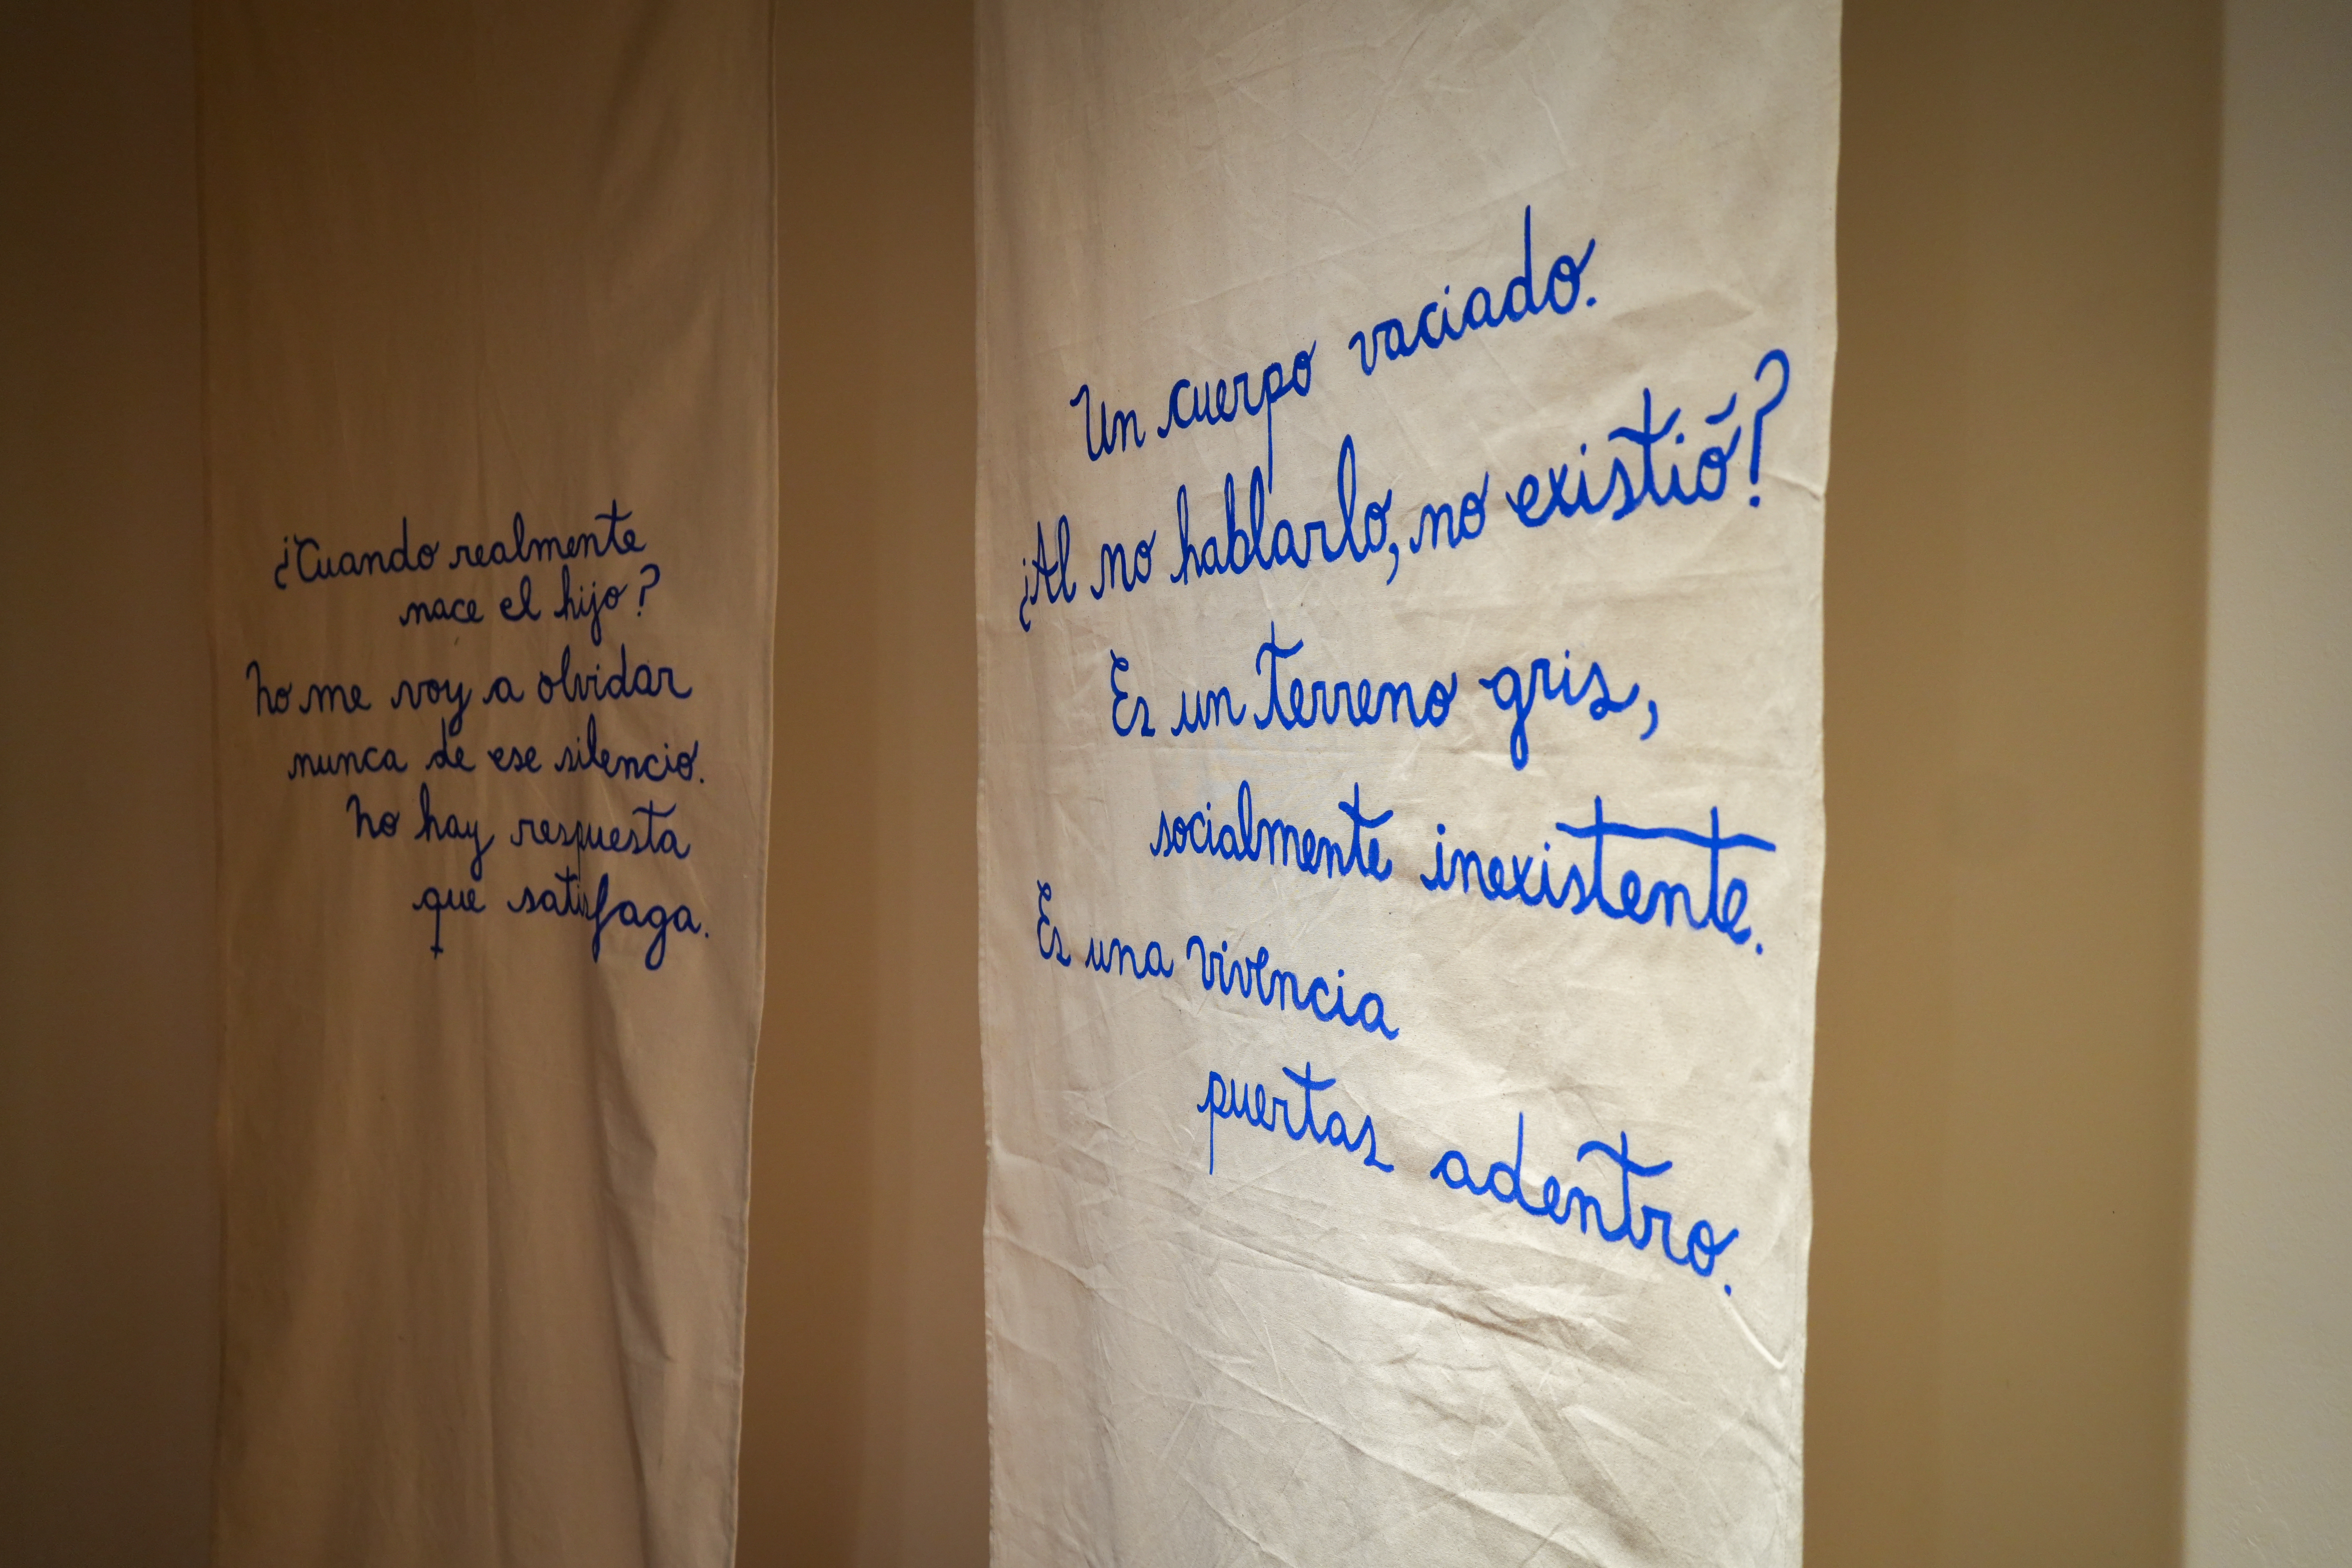 ¿Cuando realmente
nace el hijo?
No me voy a olvidar
nunca de ese silencio.
No hay respuesta
que satisfaga.
Un cuerpo vaciado.
¿Al no hablarlo, no existió?
Es un terreno gris,
socialmente inexistente.
Es una vivencia
puertas adentro.